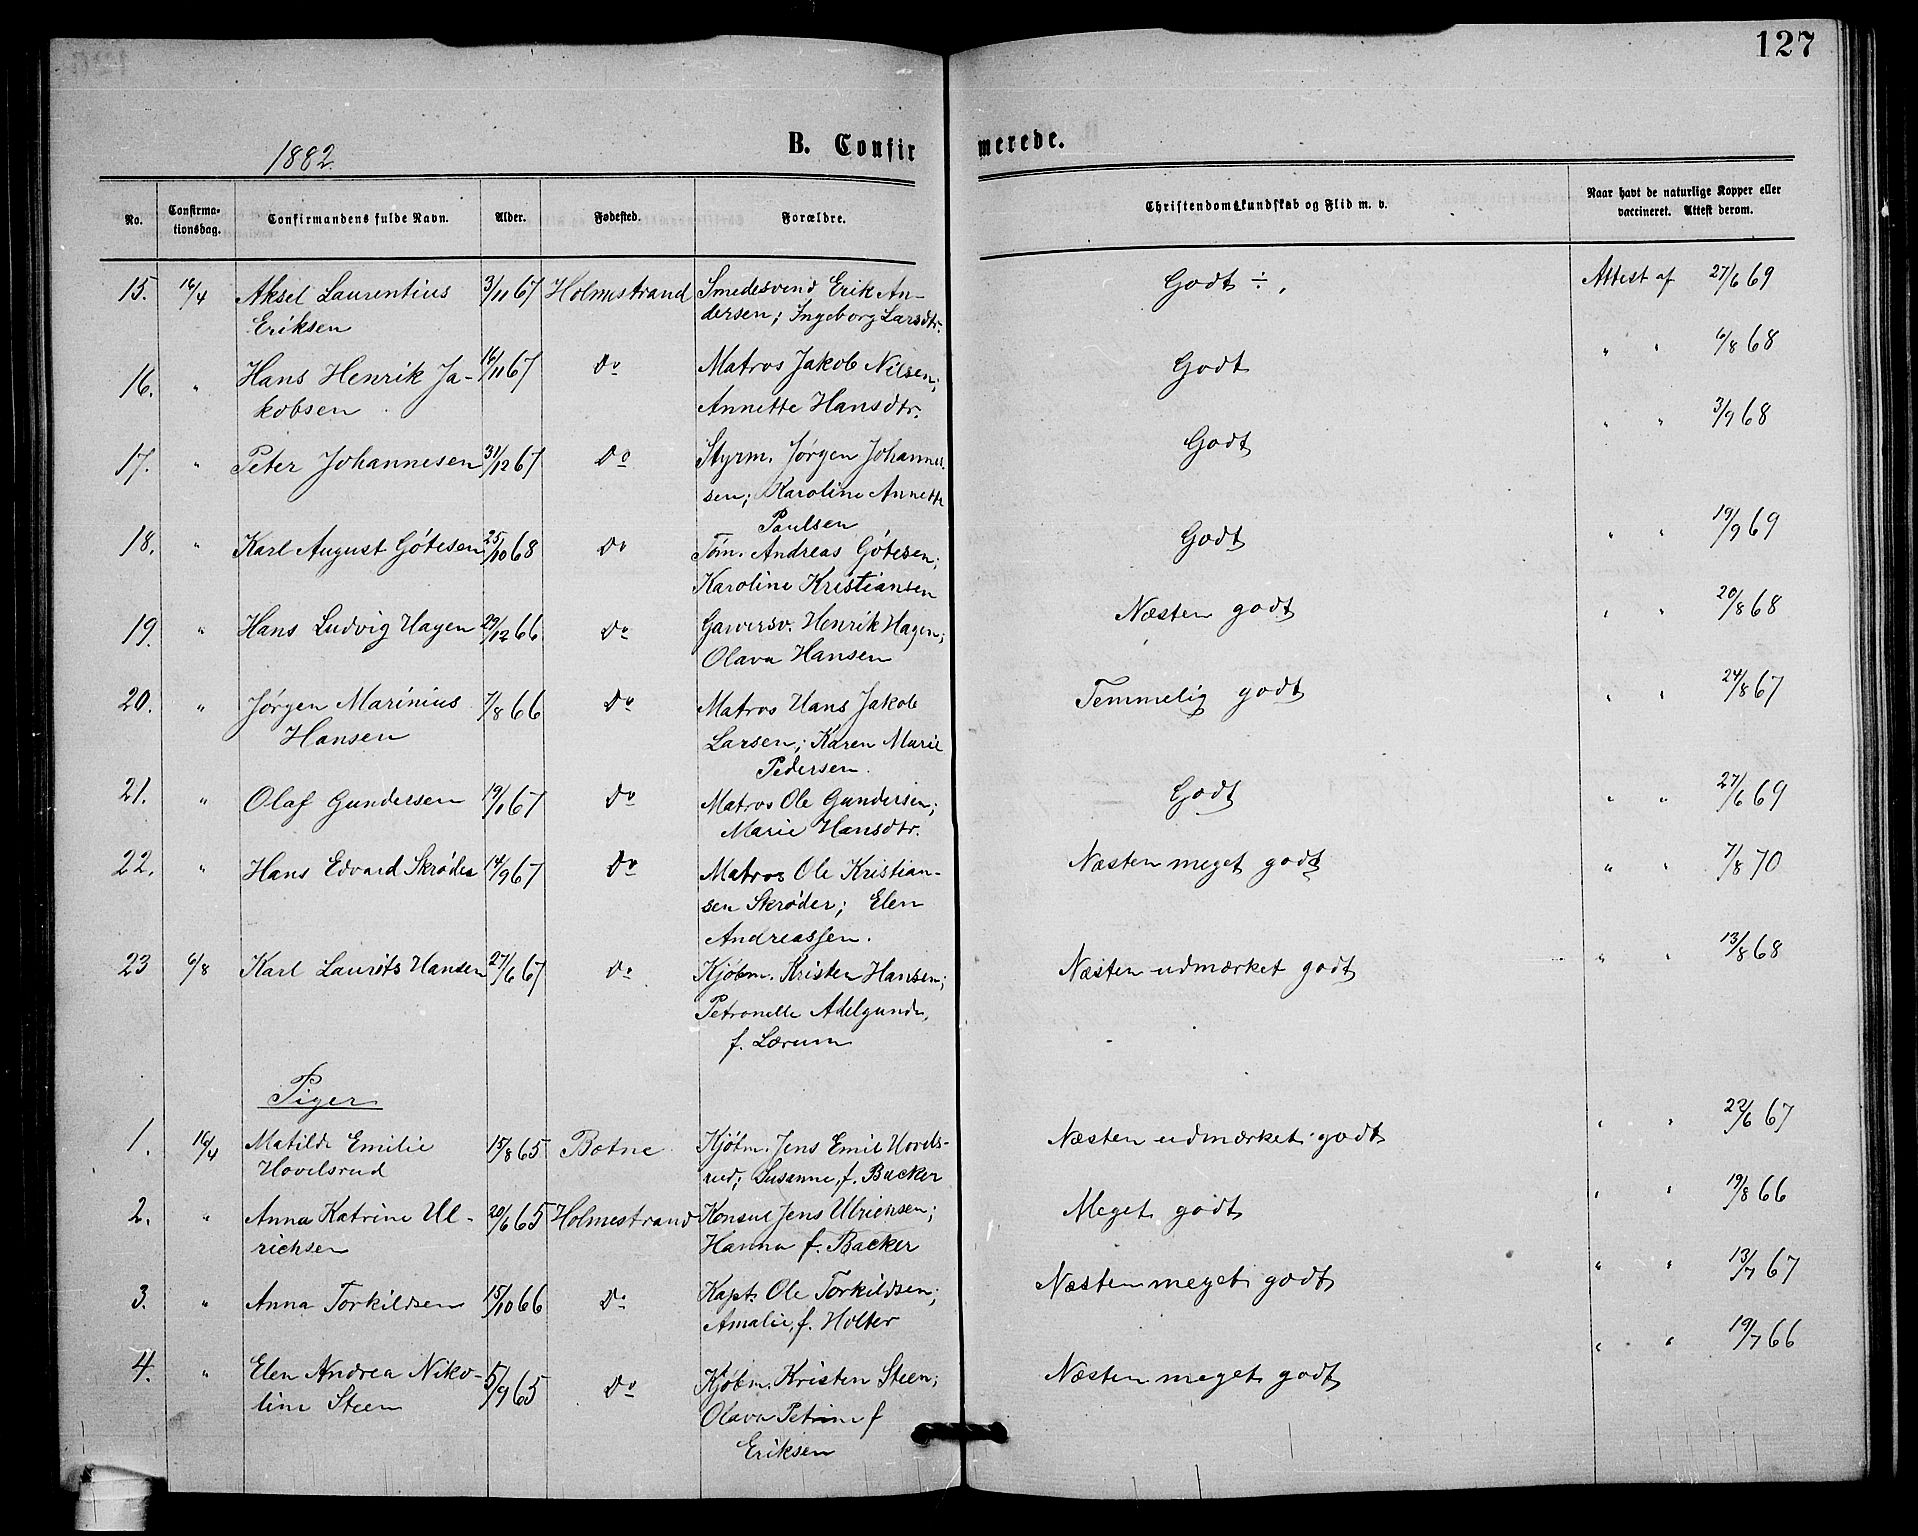 127
1882.
B. Confirmerede.
No. Confirma-tionsdag. Confirmandens fulde Navn. Alder. Fødested. Forældre. Christendomskundskab og Flid m. v. Naar havt de naturlige Kopper eller vaccineret. Attest derom.
15. 16/4 Aksel Laurentius 3/11 67 Holmestrand Smedesvend Erik An- Godt ÷. Attest af 27/6 69
Eriksen dersen; Ingeborg Larsdtr.
16. " Hans Henrik Ja- 16/11 67 Do Matros Jakob Nilsen; Godt " " 6/8 68
kobsen Annette Hansdtr.
17. " Peter Johannesen 31/12 67 Do Styrm. Jørgen Johannes- Godt " " 3/9 68
sen; Karoline Annette
Paulsen
18. " Karl August Götesen 25/10 68 Do Töm. Andreas Götesen; Godt " " 19/9 69
Karoline Kristiansen
19. " Hans Ludvig Hagen 29/12 66 Do Garversv. Henrik Hagen; Næsten godt " " 20/8 68
Olava Hansen
20. " Jørgen Marinius 7/8 66 Do Matros Hans Jakob Temmelig godt " " 24/8 67
Hansen Larsen; Karen Marie
Pedersen.
21. " Olaf Gundersen 19/1 67 Do Matros Ole Gundersen; Godt " " 27/6 69
Marie Hansdtr.
22. " Hans Edvard Skrøder 14/9 67 Do Matros Ole Kristian- Næsten meget godt " " 7/8 70
sen Skrøder; Elen
Andreassen.
23 6/8 Karl Laurits Hansen 27/6 67 Do Kjøbm. Kristen Hansen; Næsten udmærket godt " " 13/8 68
Petronelle Adelgunde,
f. Lærum
Piger
1. 16/4 Matilde Emilie 15/8 65 Botne Kjøbm. Jens Emil Hovels- Næsten udmærket godt " " 22/6 67
Hovelsrud rud; Susanne, f. Backer
2. " Anna Katrine Ul- 20/6 65 Holmestrand Konsul Jens Ulrichsen; Meget godt " " 19/8 66
richsen Hanna f. Backer
3. " Anna Torkildsen 15/10 66 Do Kapt. Ole Torkildsen; Næsten meget godt " " 13/7 67
Amalie, f. Holter
4. " Elen Andrea Niko- 5/9 65 Do Kjøbm. Kristen Steen; Næsten meget godt " " 19/7 66
line Steen Olava Petrine f
Eriksen